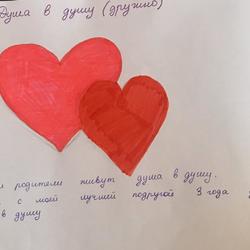 Душа в душу (дружно)
родители живут душа в душу.
с моей лучшей подругой 3 года
в душу